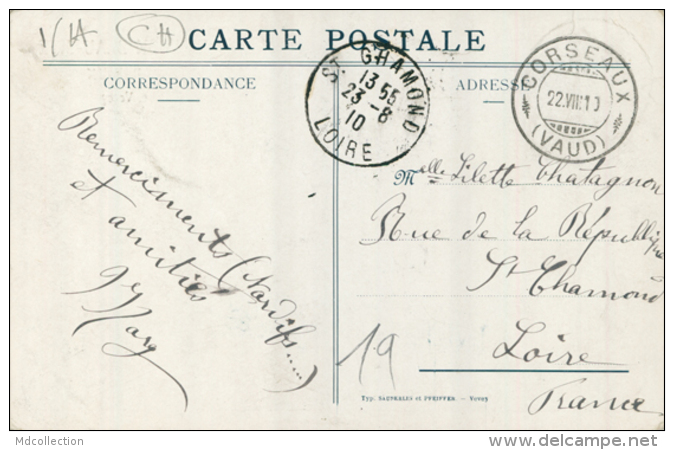 1/A CH
CARTE POSTALE
CORRESPONDANCE
ADRESSE
ST CHAMOND
13 55
23-8
10
LOIRE
CORSEAUX
22.VIII.10
(VAUD)
Remerciements (tardifs.....)
et amitiés
Mary
Melle Lilette Chatagnon
Rue de la République
St Chamond
Loire
France
19
Typ. SAUBERLIN et PFEIFFER. — Vevey
Mdcollection
http://www.delcampe.net